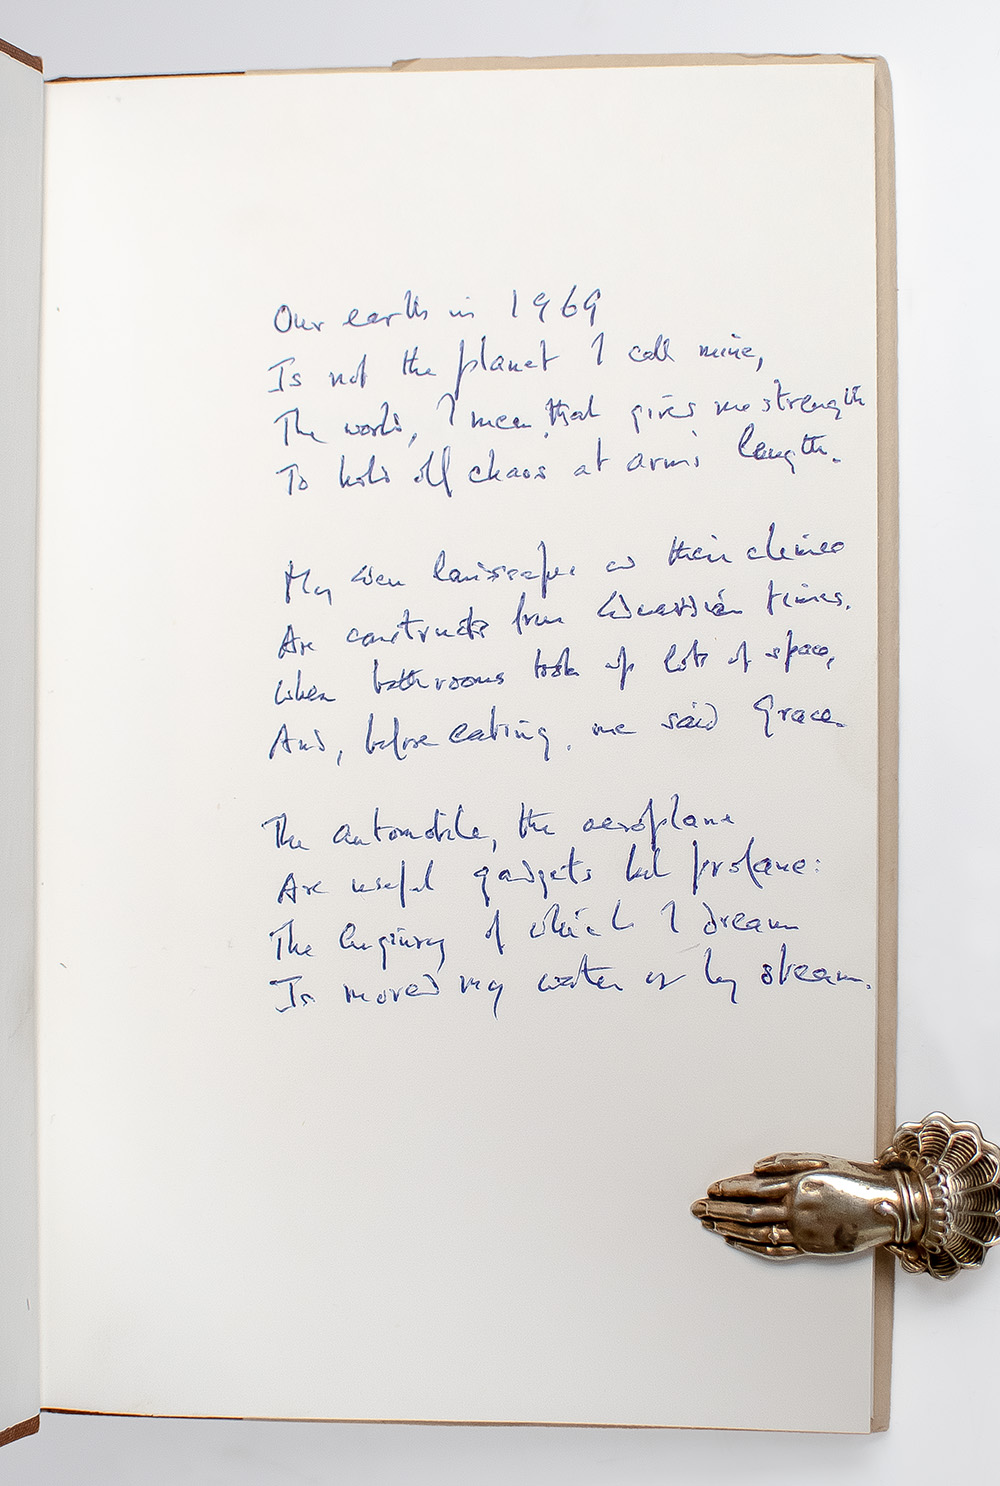 Our earth in 1969
Is not the planet I call mine,
The world, I mean, that gives me strength
To hold off chaos at arm's length.
My Eden landscapes and their climes
Are constructs from Edwardian times,
When bathrooms took up lots of space,
And, before eating, one said Grace.
The automobile, the aeroplane
Are useful gadgets but profane:
The enginry of which I dream
Is moved by water or by steam.